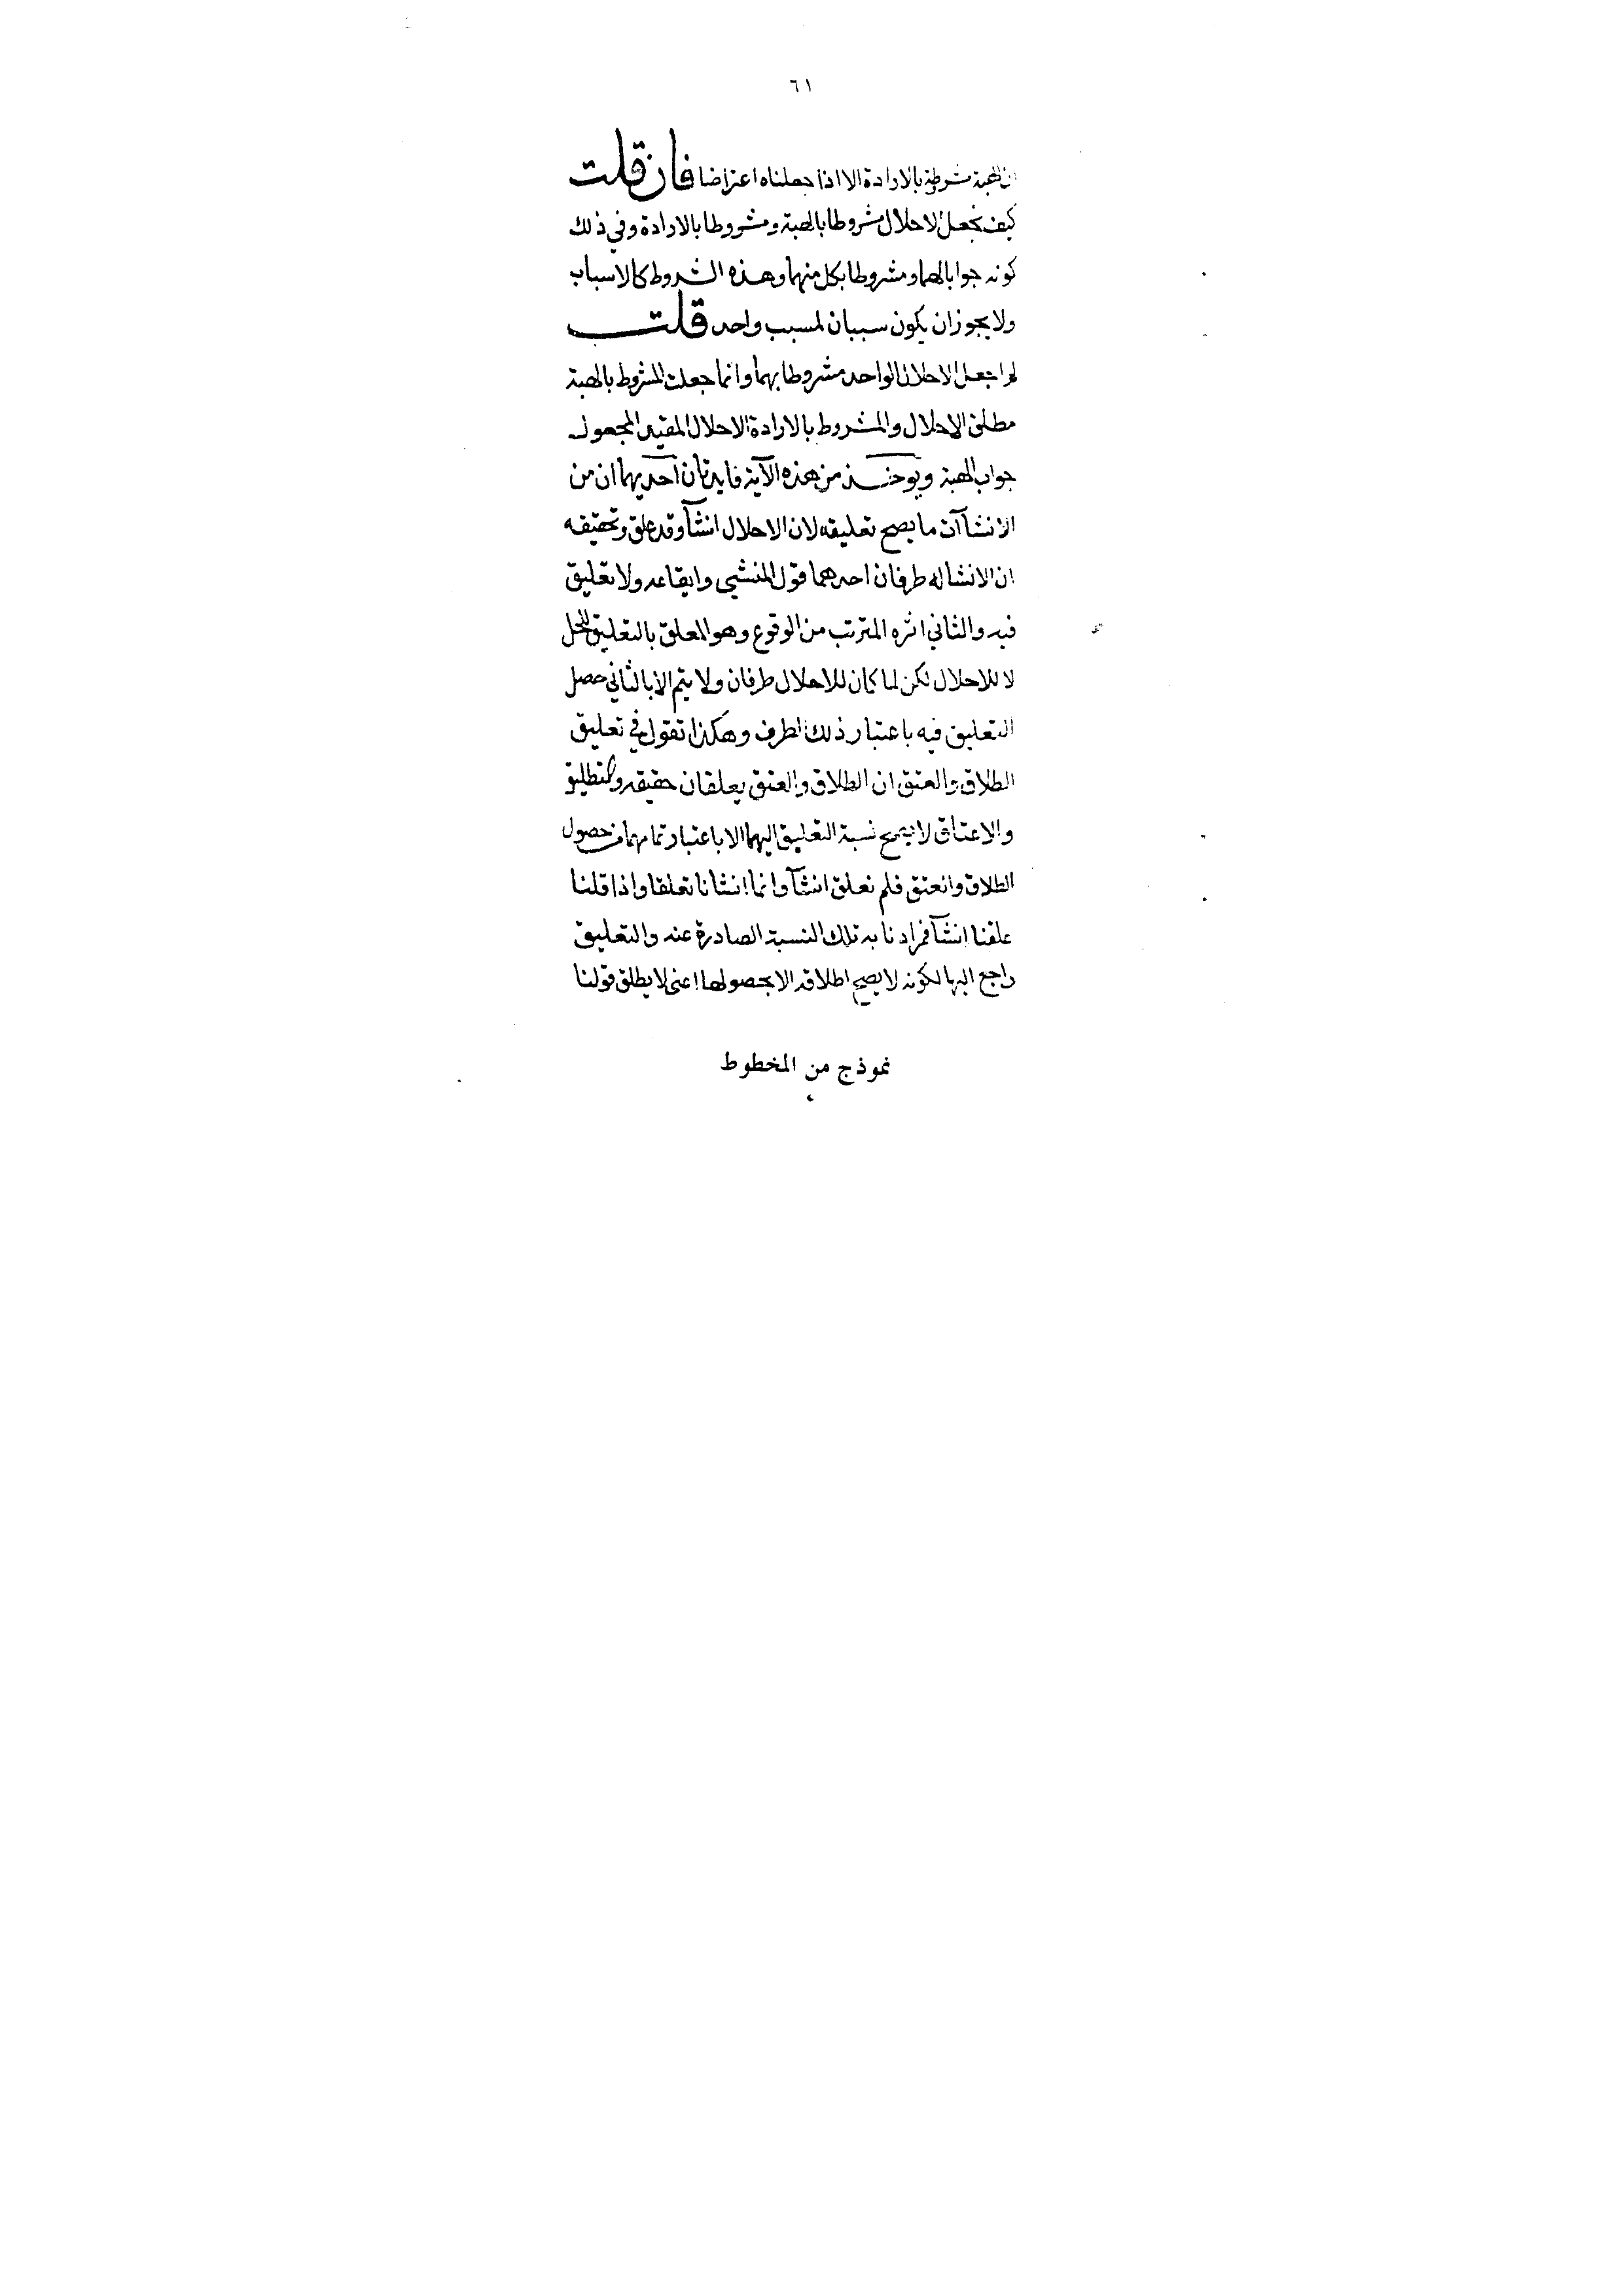 ٦١
ان الهبة شرطية بالارادة الا اذا جعلناه اعتراضا فان قلت
كيف تجعل الاحلال مشروطا بالهبة ومشروطا بالارادة وفي ذلك
كونه جوابا لهما ومشروطا بكل منهما وهذه الشروط كالاسباب
ولا يجوز ان يكون سببان لمسبب واحد قلت
لم اجعل الاحلال الواحد مشروطا بهما وانما جعلت المشروط بالهبة
مطلق الاحلال والمشروط بالارادة الاحلال المقيد المجعول
جواب الهبة ويوخذ من هذه الآية فايدتان احديهما ان من
الانشآآت ما يصح تعليقه لان الاحلال انشآ وقد علق وتحقيقه
ان الانشا له طرفان احدهما قول المنشي وايقاعه ولا تعليق
فيه والثاني اثره المترتب من الوقوع وهو المعلق بالتعليق للحل
لا للاحلال لكن لما كان للاحلال طرفان ولا يتم الا بالثاني حصل
التعليق فيه باعتبار ذلك الطرف وهكذا تقول في تعليق
الطلاق والعتق ان الطلاق والعتق يعلقان حقيقه والتطليق
والاعتاق لا يصح نسبة التعليق اليهما الا باعتبار تمامهما من حصول
الطلاق والعتق فلم نعلق انشآ وانما انشانا تعلقا واذا قلنا
علقنا انشآ فمرادنا به تلك النسبة الصادرة عنه والتعليق
راجع اليها لكونه لا يصح اطلاقه الا بحصولها اعني لا يطلق قولنا
نموذج من المخطوط